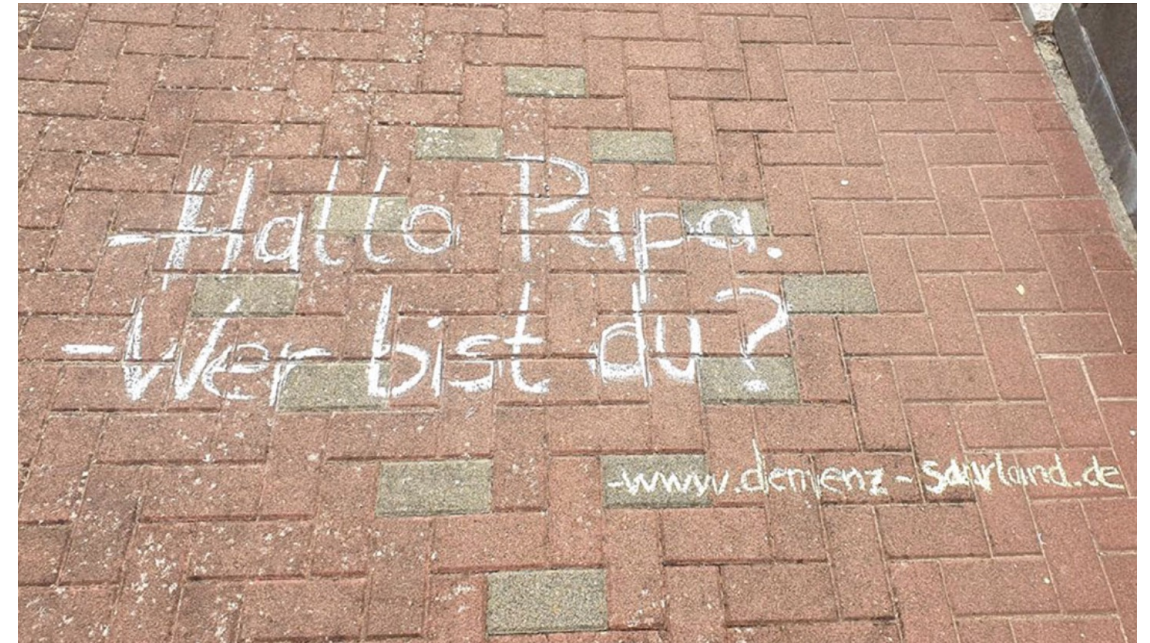 - Hallo Papa.
- Wer bist du?
- www.demenz-saarland.de